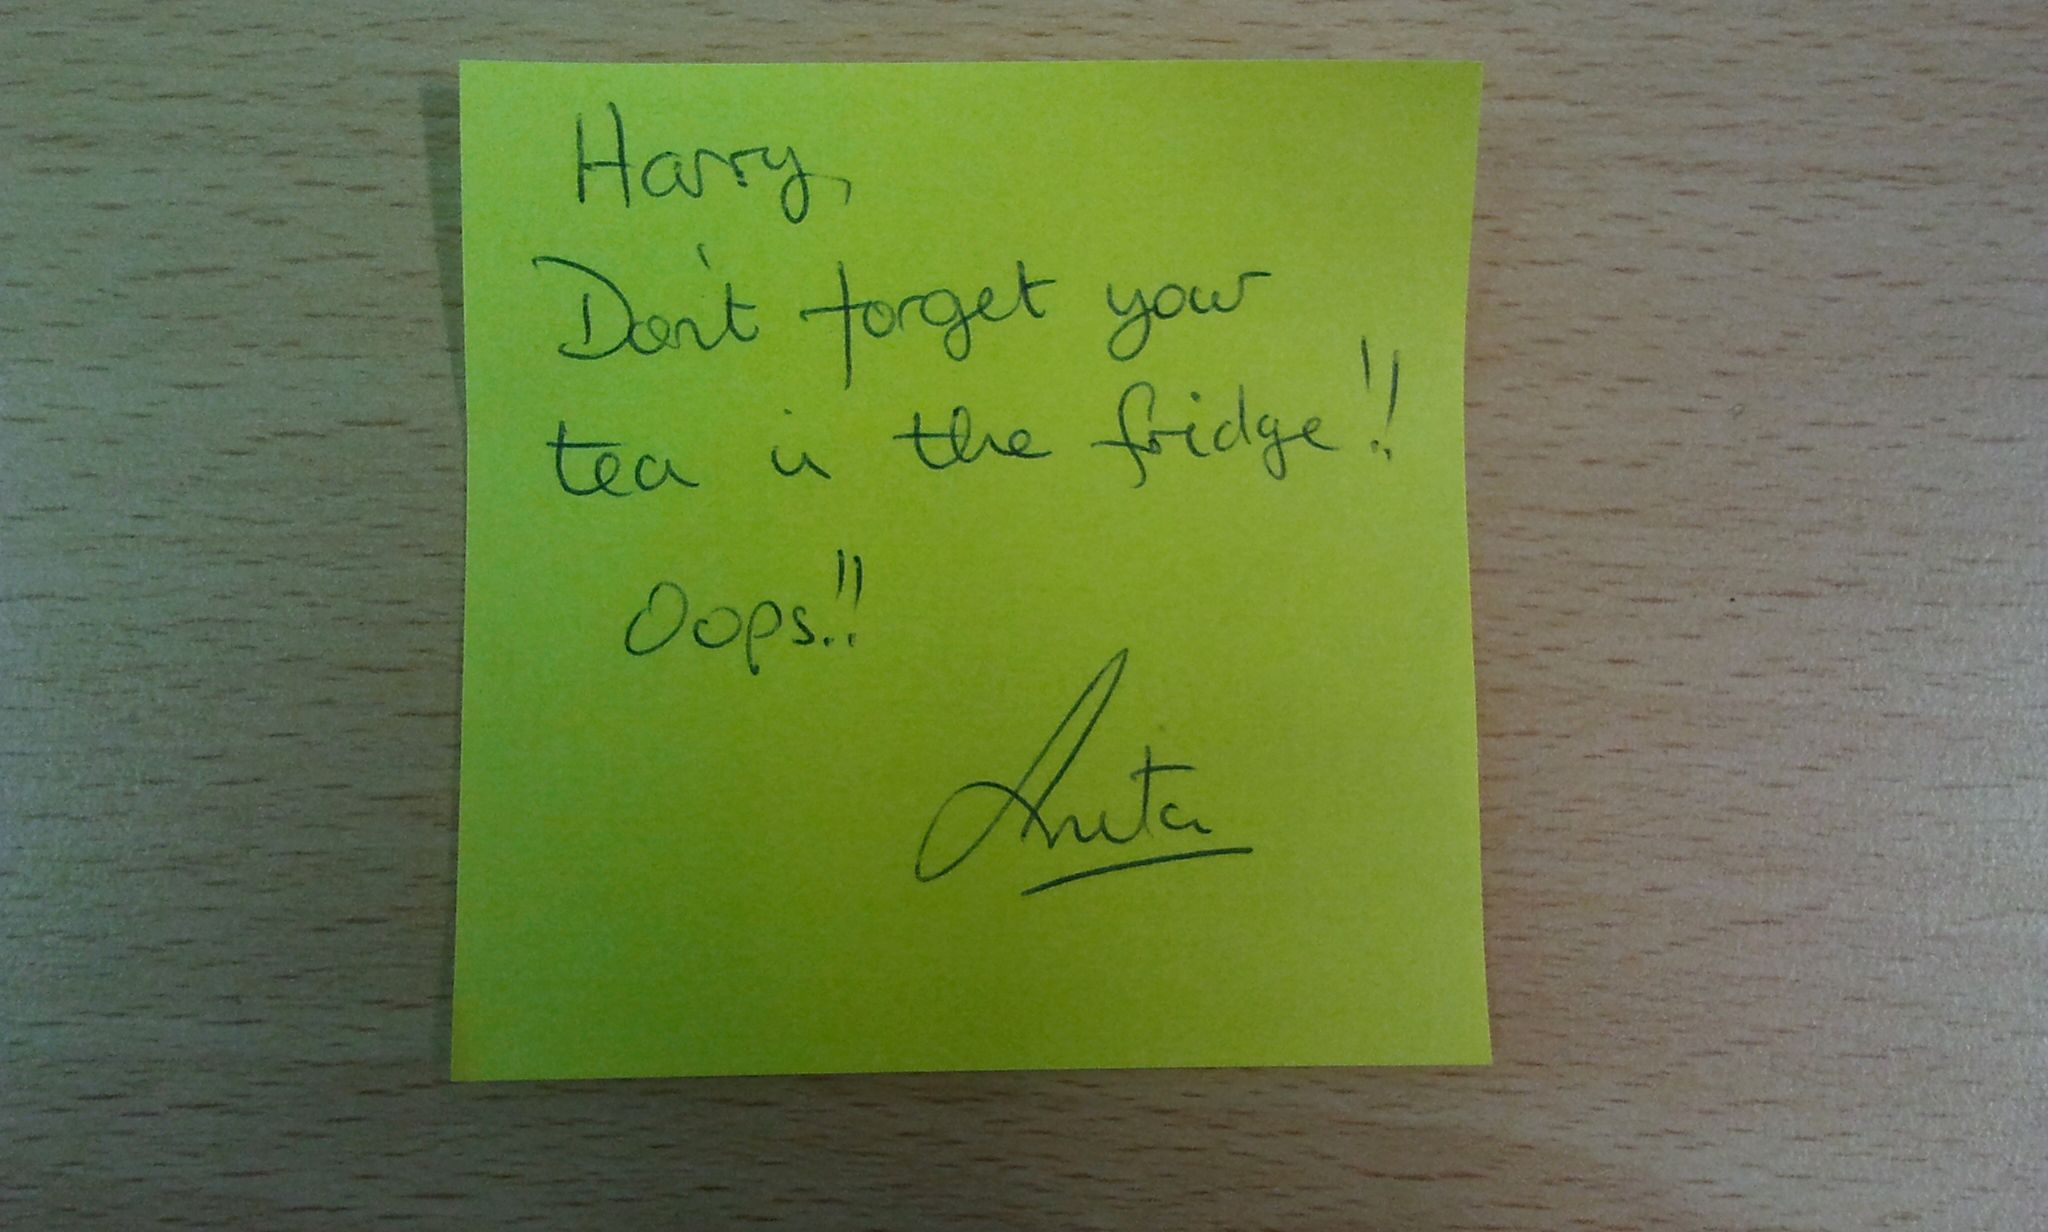 Harry,
Don't forget your
tea is the fridge!!
Oops!!
Anita